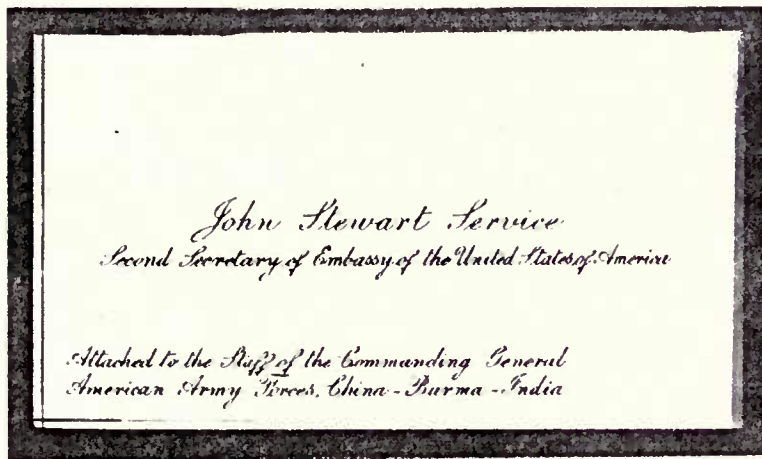 John Stewart Service
Second Secretary of Embassy of the United States of America
Attached to the Staff of the Commanding General
American Army Forces, China - Burma - India